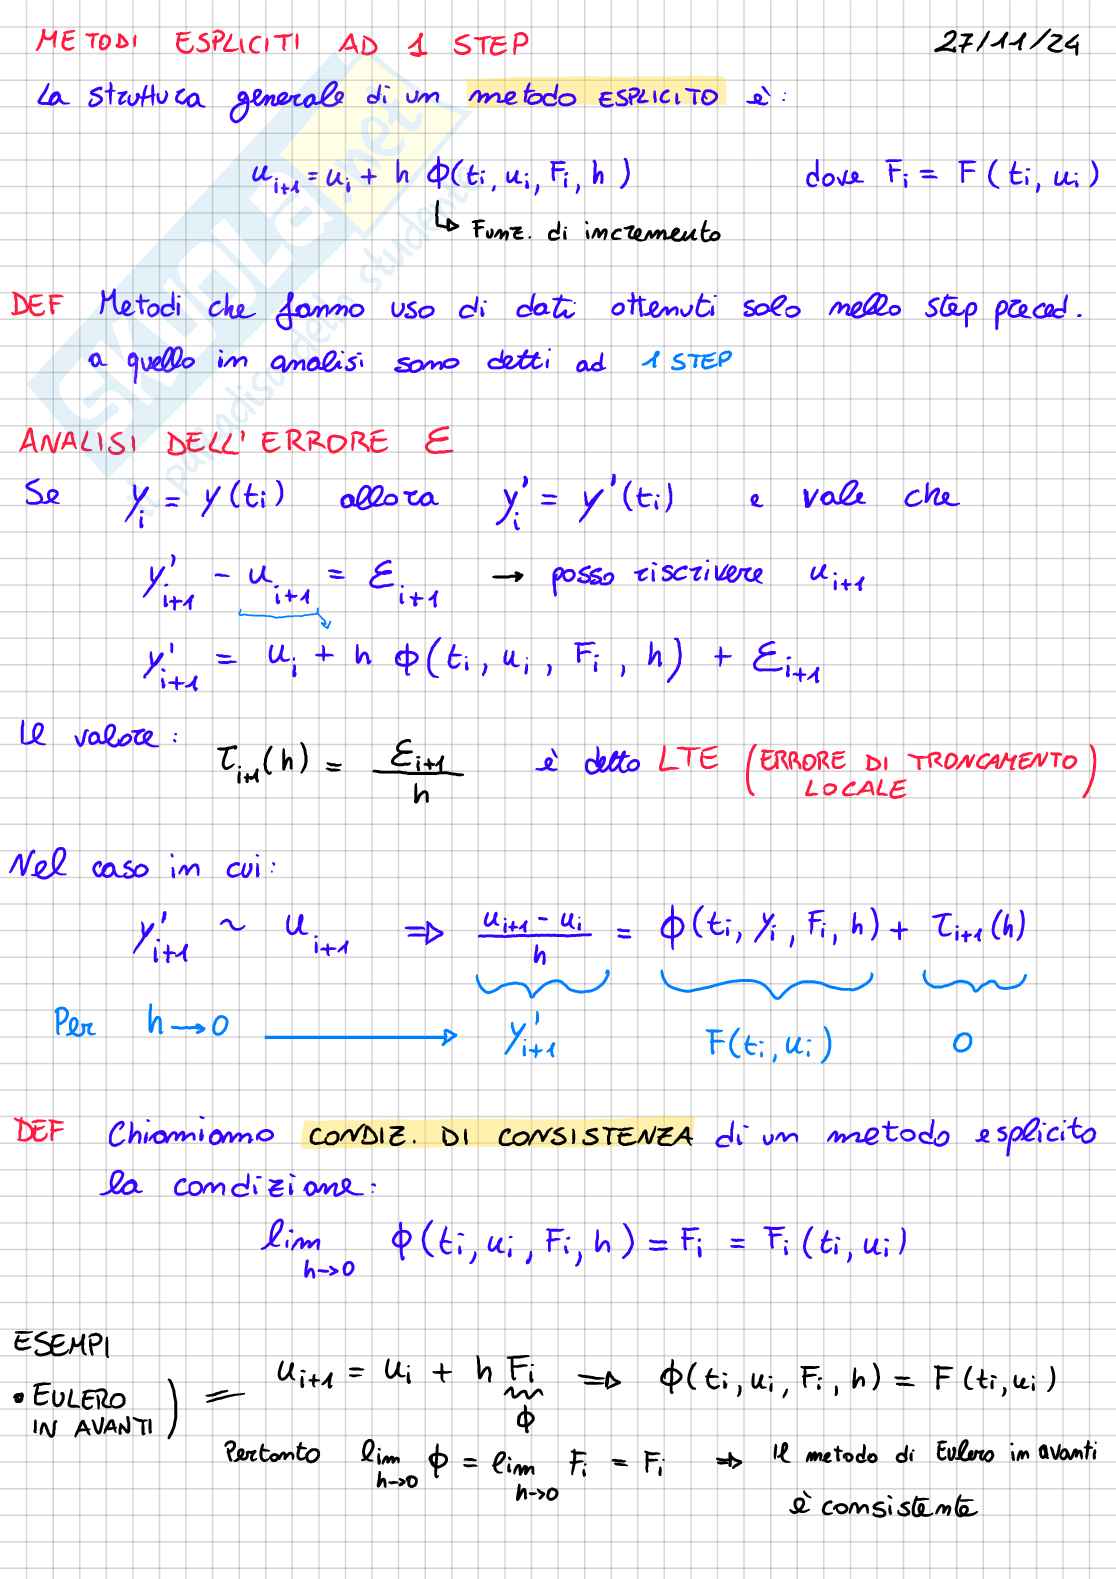 METODI ESPLICITI AD 1 STEP 27/11/24
La struttura generale di un metodo ESPLICITO è:
u_{i+1} = u_i + h ϕ(t_i, u_i, F_i, h) dove F_i = F(t_i, u_i)
↳ Funz. di incremento
DEF Metodi che fanno uso di dati ottenuti solo nello step preced.
a quello in analisi sono detti ad 1 STEP
ANALISI DELL'ERRORE ε
Se y_i = y(t_i) allora y'_i = y'(t_i) e vale che
y'_{i+1} - u_{i+1} = ε_{i+1} → posso riscrivere u_{i+1}
y'_{i+1} = u_i + h ϕ(t_i, u_i, F_i, h) + ε_{i+1}
Il valore: τ_{i+1}(h) = ε_{i+1} / h è detto LTE (ERRORE DI TRONCAMENTO LOCALE)
Nel caso in cui:
y'_{i+1} ~ u_{i+1} ⇒ (u_{i+1} - u_i) / h = ϕ(t_i, y_i, F_i, h) + τ_{i+1}(h)
Per h → 0 → y'_{i+1} F(t_i, u_i) 0
DEF Chiamiamo CONDIZ. DI CONSISTENZA di un metodo esplicito
la condizione:
lim h→0 ϕ(t_i, u_i, F_i, h) = F_i = F_i(t_i, u_i)
ESEMPI
• EULERO IN AVANTI) = u_{i+1} = u_i + h F_i ⇒ ϕ(t_i, u_i, F_i, h) = F(t_i, u_i)
ϕ
Pertanto lim h→0 ϕ = lim h→0 F_i = F_i ⇒ Il metodo di Eulero in avanti
è consistente
SKUOLA.net
paradiso dello studente